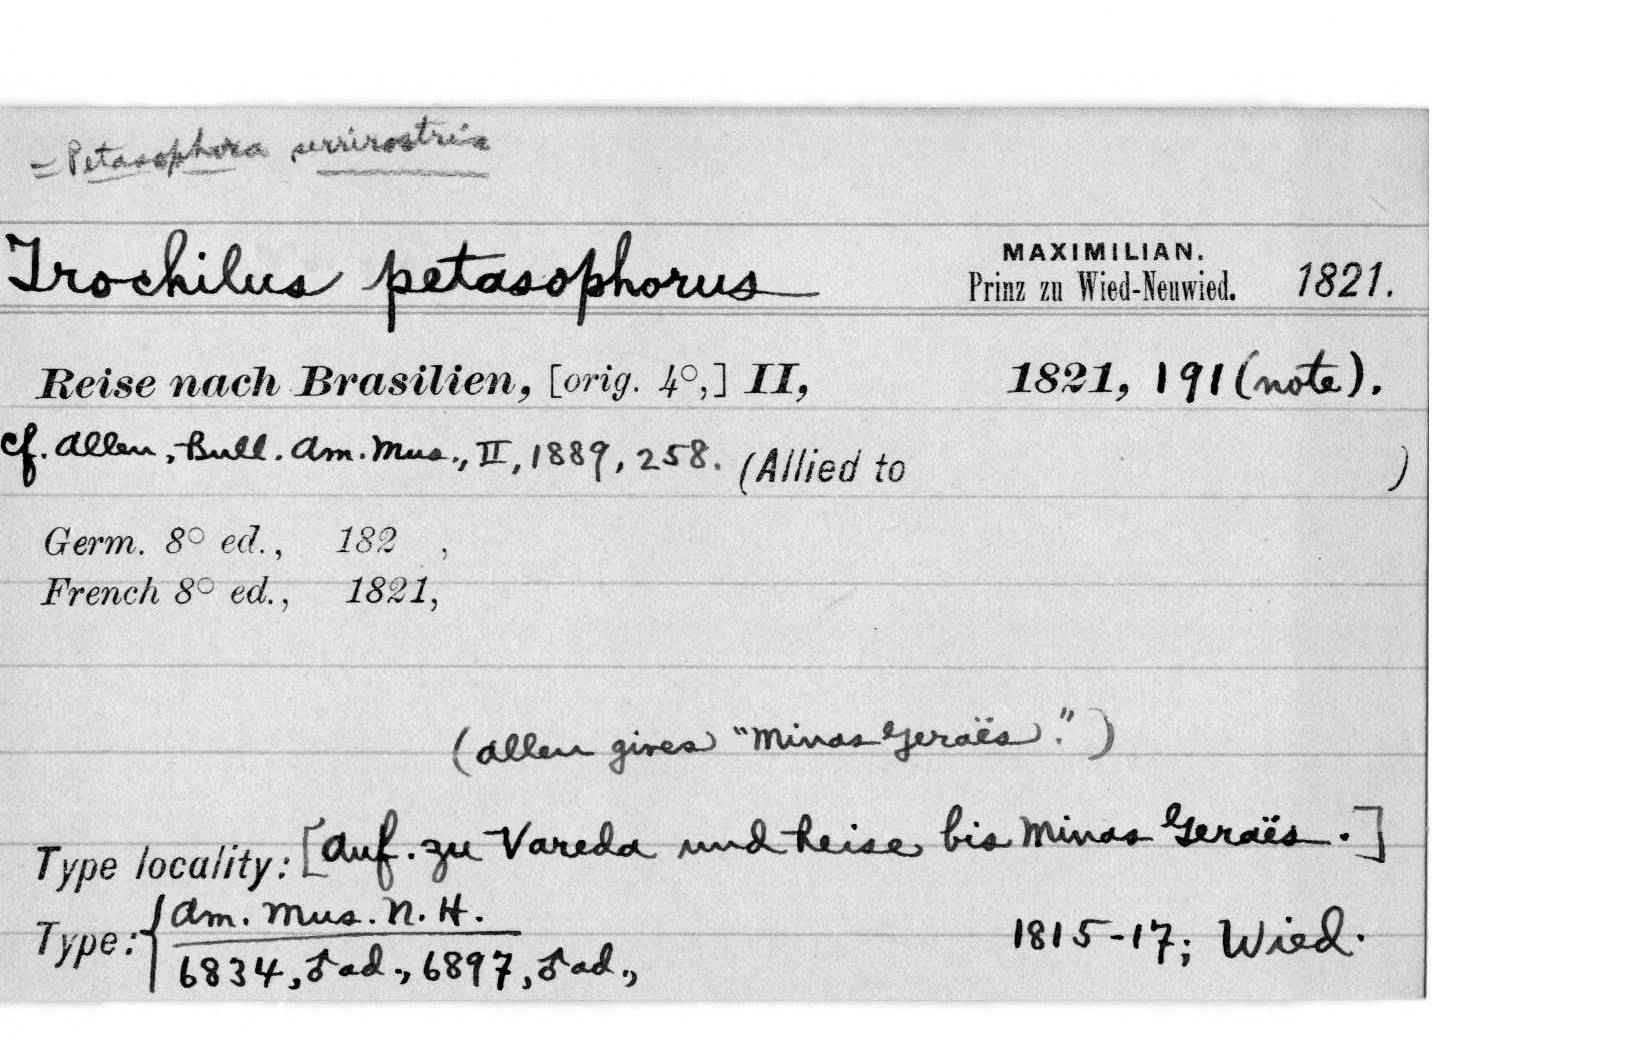 = Petasophora serrirostris
Trochilus petasophorus MAXIMILIAN. Prinz zu Wied-Neuwied. 1821.
Reise nach Brasilien, [orig. 4°,] II, 1821, 191 (note).
cf. Allen, Bull. Am. Mus., II, 1889, 258. (Allied to )
Germ. 8° ed., 182 ,
French 8° ed., 1821,
(Allen gives "Minas Geraës.")
Type locality: [Auf. zu Vareda und Reise bis Minas Geraës.]
Type: { Am. Mus. N. H.
6834, ♂ ad., 6897, ♂ ad., 1815-17; Wied.